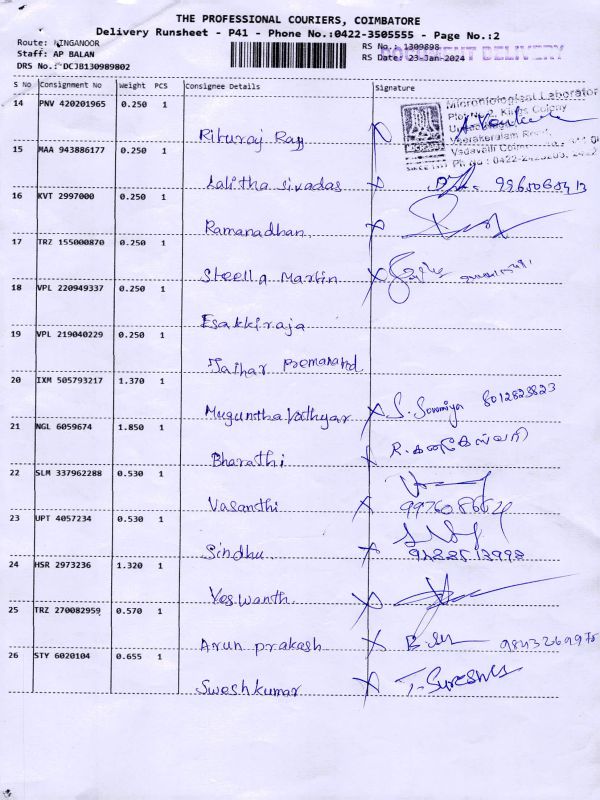 THE PROFESSIONAL COURIERS, COIMBATORE
Delivery Runsheet - P41 - Phone No.:0422-3505555 - Page No.:2
Route: KINGANOOR
Staff: AP BALAN
DRS No.: DCJB130989802
RS No.: 1309898
RS Date: 23-Jan-2024
DELIVERY
S No Consignment No Weight PCS Consignee Details Signature
14 PNV 420201965 0.250 1
Microbiological Laborator
Kings Colony
Rituraj Ray
15 MAA 943886177 0.250 1
Lalitha Sivadas
16 KVT 2997000 0.250 1
Ramanadhan
17 TRZ 155000870 0.250 1
Steella Martin
18 VPL 220949337 0.250 1
Esakkiraja
19 VPL 219040229 0.250 1
Jaihar Premanand
20 IXM 505793217 1.370 1
Muguntha Vathyar S. Sowmiya 8012823823
21 NGL 6059674 1.850 1
Bharathi
22 SLM 337962288 0.530 1
Vasanthi
23 UPT 4057234 0.530 1
Sindhu
24 HSR 2973236 1.320 1
Yeswanth
25 TRZ 270082959 0.570 1
Arun prakash
26 STY 6020104 0.655 1
Sureshkumar T. SURESHKS